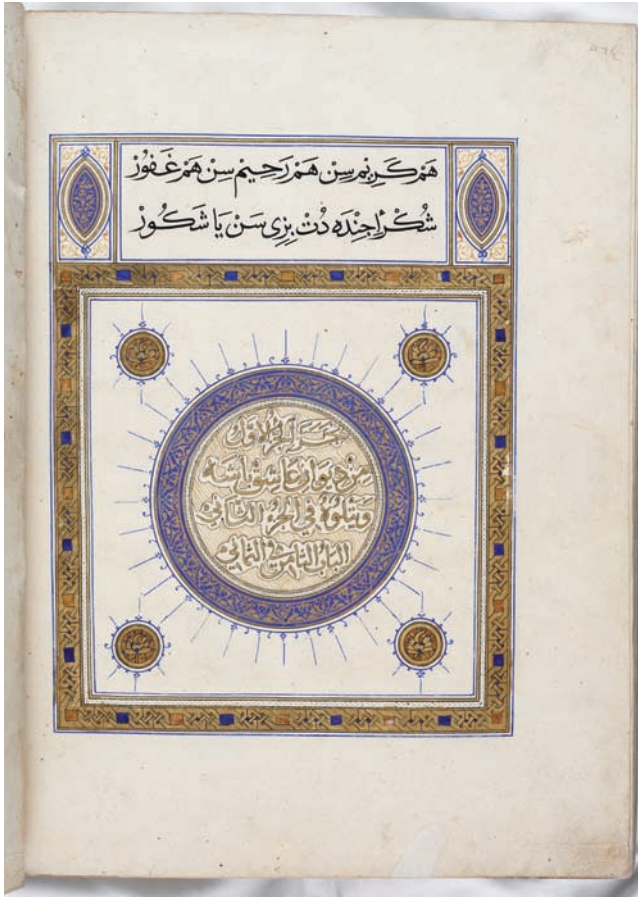 هَمْ كَرِيمْ سِنْ هَمْ رَحِيمْ سِنْ هَمْ غَفُورْ
شُكْر اِچِنْدَه دُتْ بِزِى سَنْ يَا شَكُورْ
نجز الجزء الاول
من ديوان عاشق باشه
ويتلوه في الجزء الثاني
الباب الثامن في الثماني